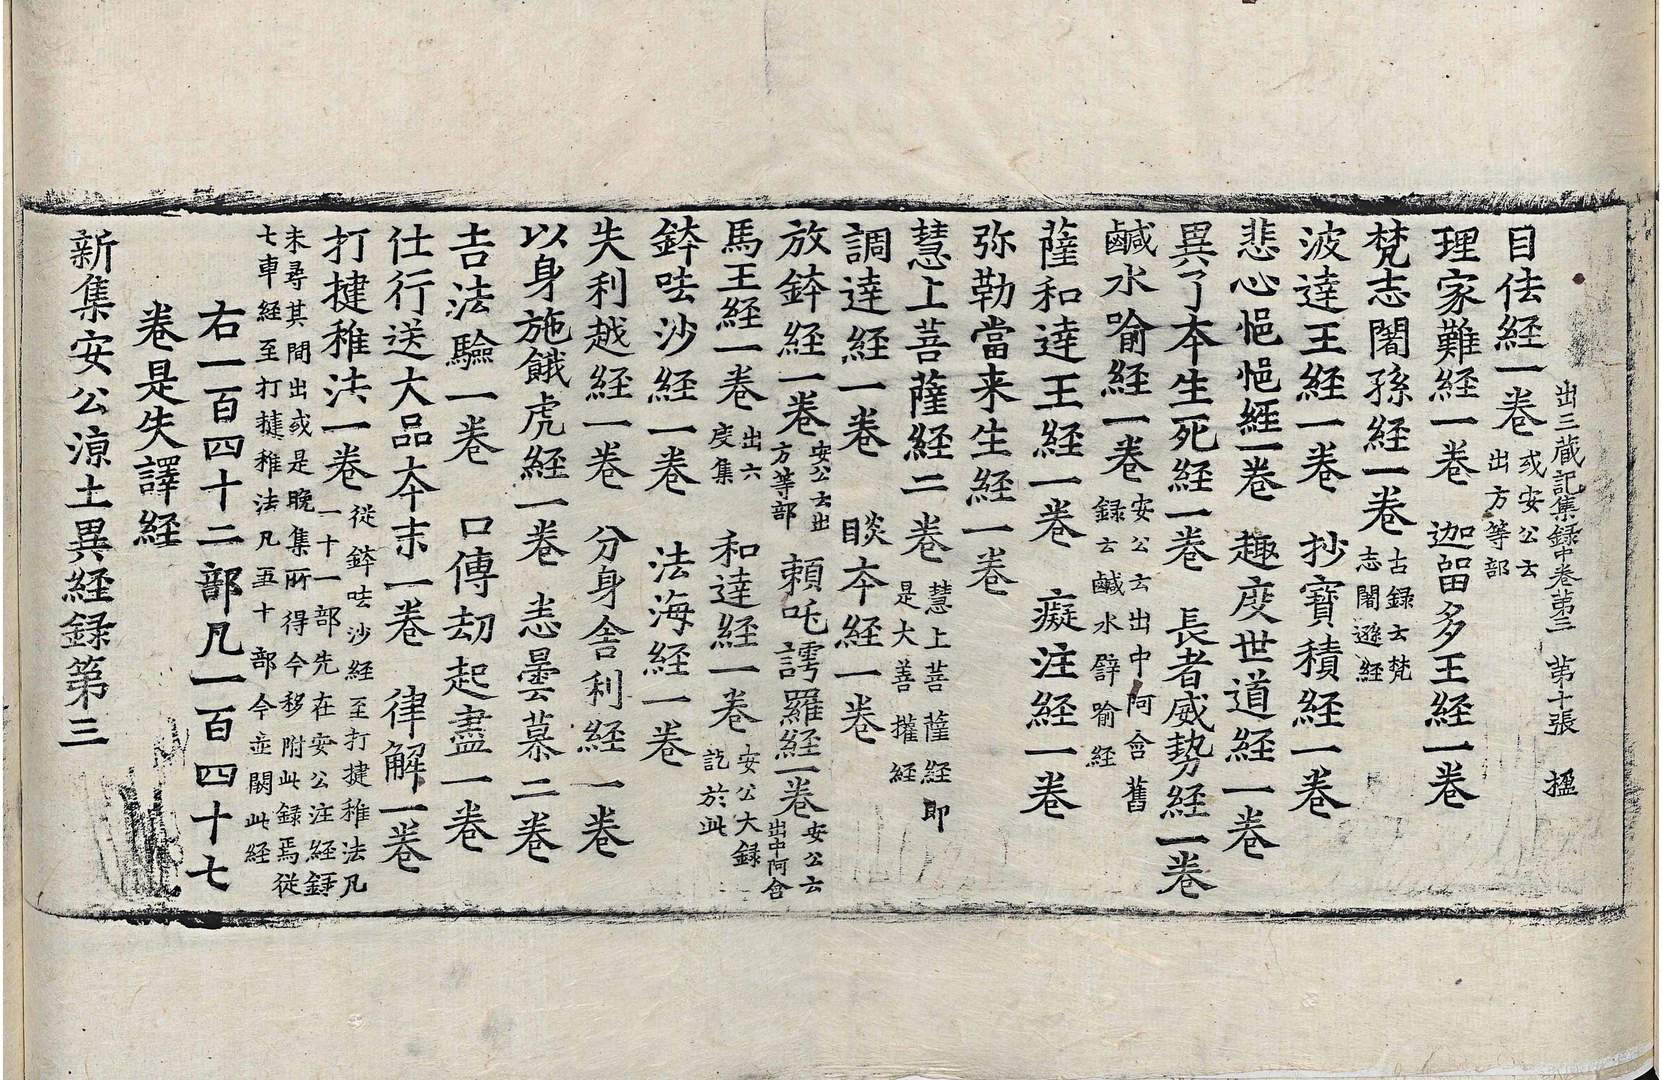 出三蔵記集録中卷第三　第十張　搵
目佉経一卷 或安公云出方等部
理家難経一卷　迦留多王経一卷
梵志闍孫経一卷 古録云梵志闍遜経
波達王経一卷　抄寳積経一卷
悲心悒悒経一卷　趣度世道経一卷
異了本生死経一卷　長者威勢経一卷
鹹水喻経一卷 安公云出中阿含舊録云鹹水譬喻経
薩和達王経一卷　癡注経一卷
弥勒當来生経一卷
慧上菩薩経二卷 慧上菩薩経即是大善攉経
調達経一卷　睒夲経一卷
放鉢経一卷 安公云出方等部　頼吒謣羅経一卷 安公云出中阿含
馬王経一卷 出六度集　和達経一卷 安公大録訖於此
鉢呿沙経一卷　法海経一卷
失利越経一卷　分身舎利経一卷
以身施餓虎経一卷　恚曇慕二卷
吉法驗一卷　口傳劫起盡一卷
仕行送大品夲末一卷　律解一卷
打揵稚法一卷 従鉢呿沙経至打揵稚法凡一十一部先在安公注経録
未尋其間出或是晚集所得今移附此録焉従
七車経至打揵稚法凡五十部今並闕此経
右一百四十二部凡一百四十七
卷是失譯経
新集安公涼土異経録第三